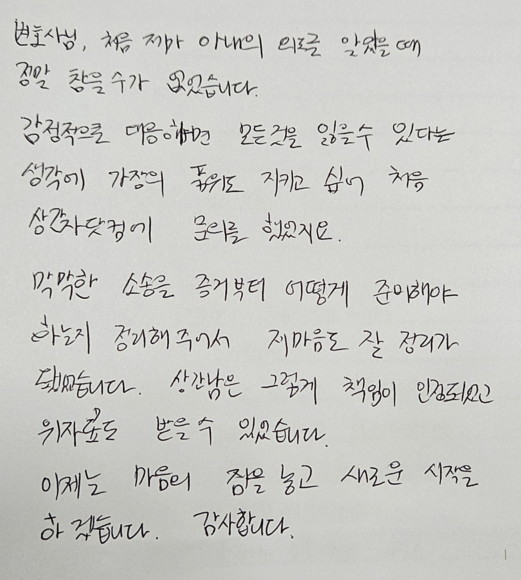 변호사님, 처음 제가 아내의 외도를 알았을 때
정말 참을 수가 없었습니다.
감정적으로 대응하면 모든것을 잃을 수 있다는
생각에 가장의 품위도 지키고 싶어 처음
상간자닷컴에 문의를 했었지요.
막막한 소송을 증거부터 어떻게 준비해야
하는지 정리해 주어서 제마음도 잘 정리가
됐었습니다. 상간남은 그렇게 책임이 인정되었고
위자료도 받을 수 있었습니다.
이제는 마음의 짐을 놓고 새로운 시작을
하겠습니다. 감사합니다.